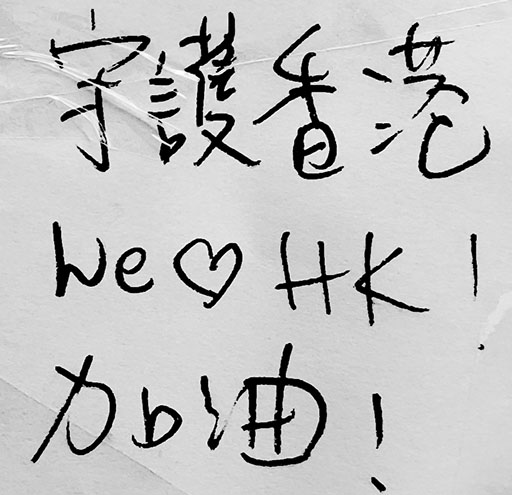 守護香港
We ♡ HK!
加油!